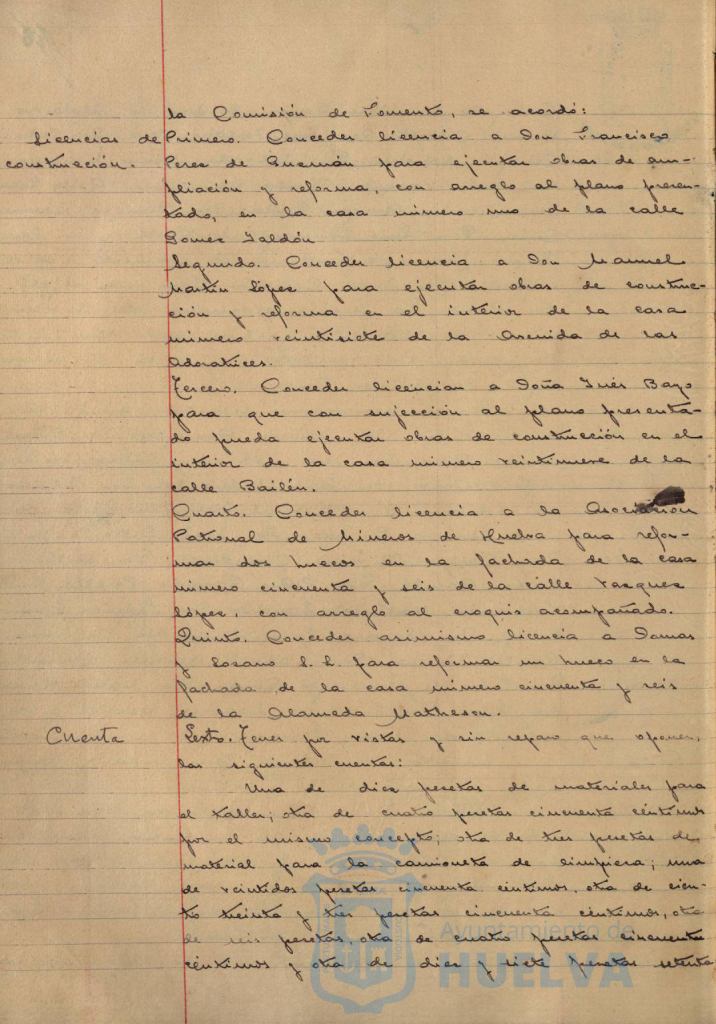 la Comisión de Fomento, se acordó:
Licencias de Primero. Conceder licencia a Don Francisco
construcción. Perez de Guzmán para ejecutar obras de am-
pliación y reforma, con arreglo al plano presen-
tado, en la casa número uno de la calle
Gomez Jaldón
Segundo. Conceder licencia a Don Manuel
Martín López para ejecutar obras de construc-
ción y reforma en el interior de la casa
número veintisiete de la Avenida de las
Adoratrices.
Tercero. Conceder licencian a Doña Inés Bayo
para que con sujección al plano presenta-
do pueda ejecutar obras de construcción en el
interior de la casa número veintinueve de la
calle Bailén.
Cuarto. Conceder licencia a la Asociación
Patronal de Mineros de Huelva para refor-
mar dos huecos en la fachada de la casa
número cincuenta y seis de la calle Vazquez
López, con arreglo al croquis acompañado.
Quinto. Conceder asimismo licencia a Damas
y Lozano S. L. para reformar un hueco en la
fachada de la casa número cincuenta y seis
de la Alameda Matheson.
Cuenta Sexto. Tener por vistas y sin reparo que oponer,
las siguientes cuentas:
Una de diez pesetas de materiales para
el taller; otra de cuatro pesetas cincuenta céntimos
por el mismo concepto; otra de tres pesetas de
material para la camioneta de limpieza; una
de veintidos pesetas cincuenta céntimos, otra de cien-
to treinta y tres pesetas cincuenta céntimos, otra
de seis pesetas, otra de cuatro pesetas cincuenta
céntimos y otra de diez y siete pesetas setenta
Ayuntamiento de
HUELVA